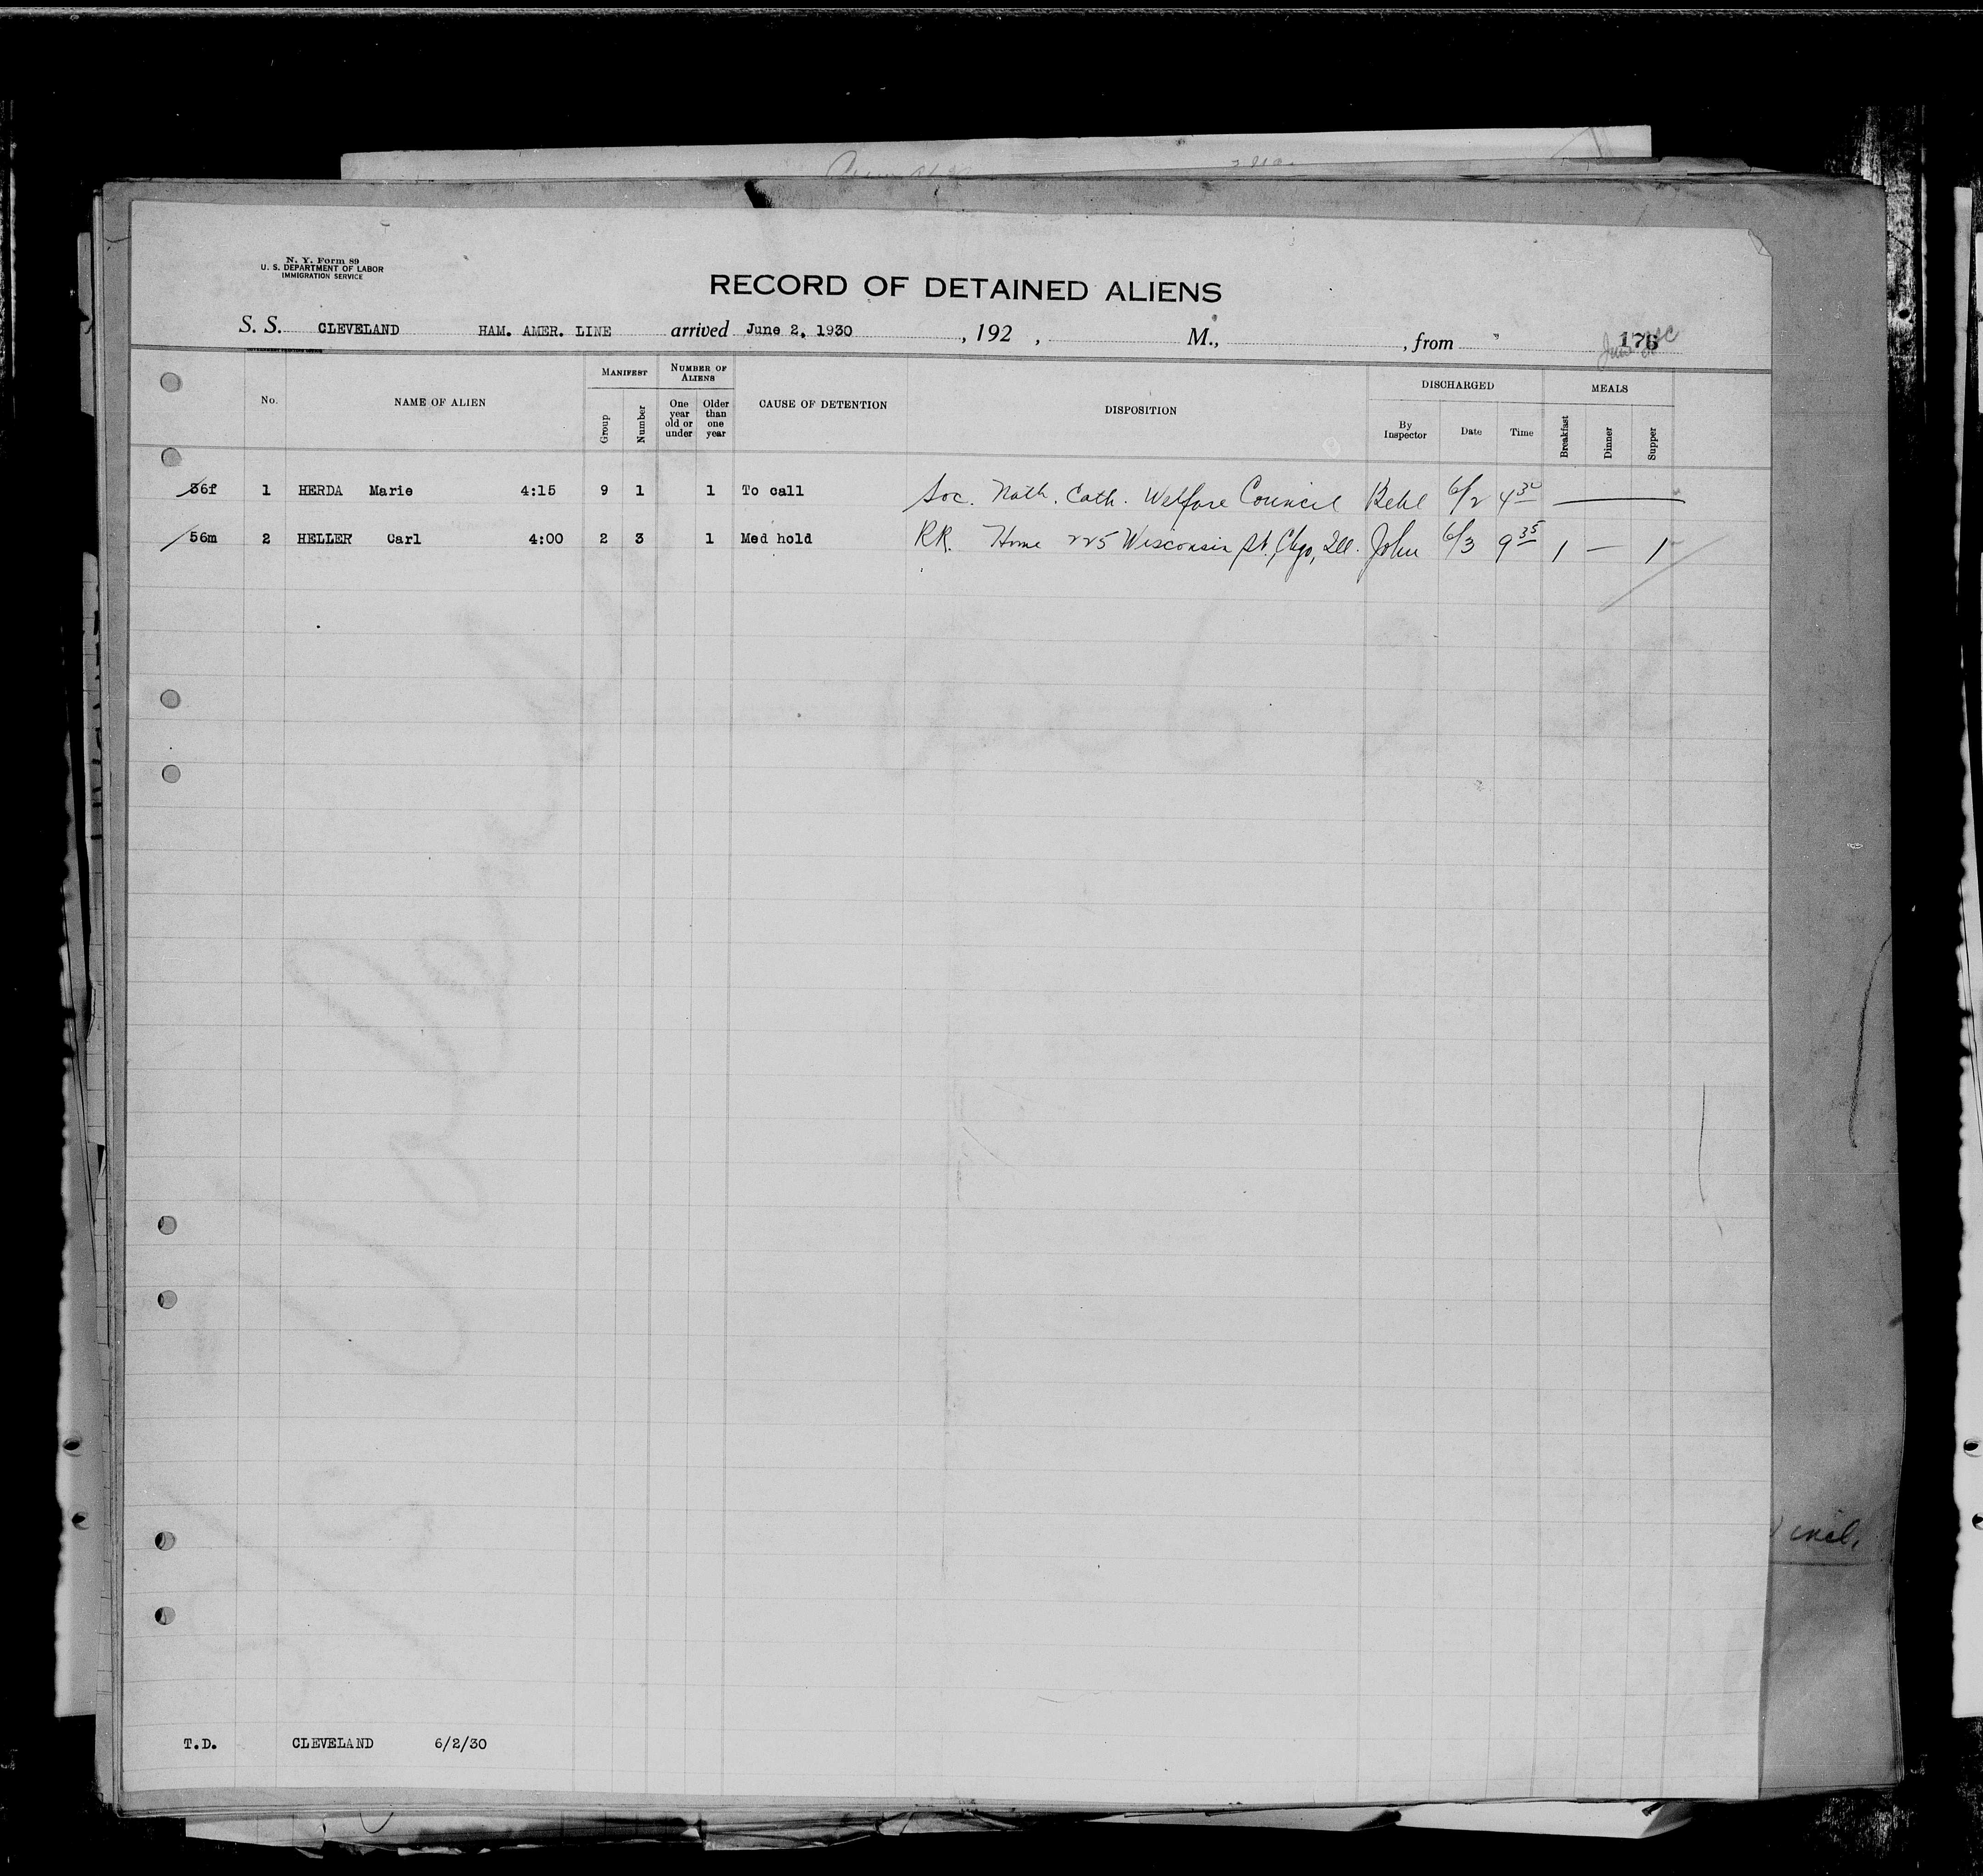 N. Y. Form 89
U. S. DEPARTMENT OF LABOR
IMMIGRATION SERVICE
RECORD OF DETAINED ALIENS
S. S. CLEVELAND HAM. AMER. LINE arrived June 2, 1930, 192 , M., , from 176
GOVERNMENT PRINTING OFFICE
No. NAME OF ALIEN MANIFEST Group Number NUMBER OF ALIENS One year old or under Older than one year CAUSE OF DETENTION DISPOSITION DISCHARGED By Inspector Date Time MEALS Breakfast Dinner Supper
36f 1 HERDA Marie 4:15 9 1 1 To call Soc. Nath. Cath. Welfare Council 6/2 4 30
56m 2 HELLER Carl 4:00 2 3 1 Med hold RR. Home 225 Wisconsin St. Chgo, Ill. John 6/3 9 35 1 — 1
incl.
T.D. CLEVELAND 6/2/30